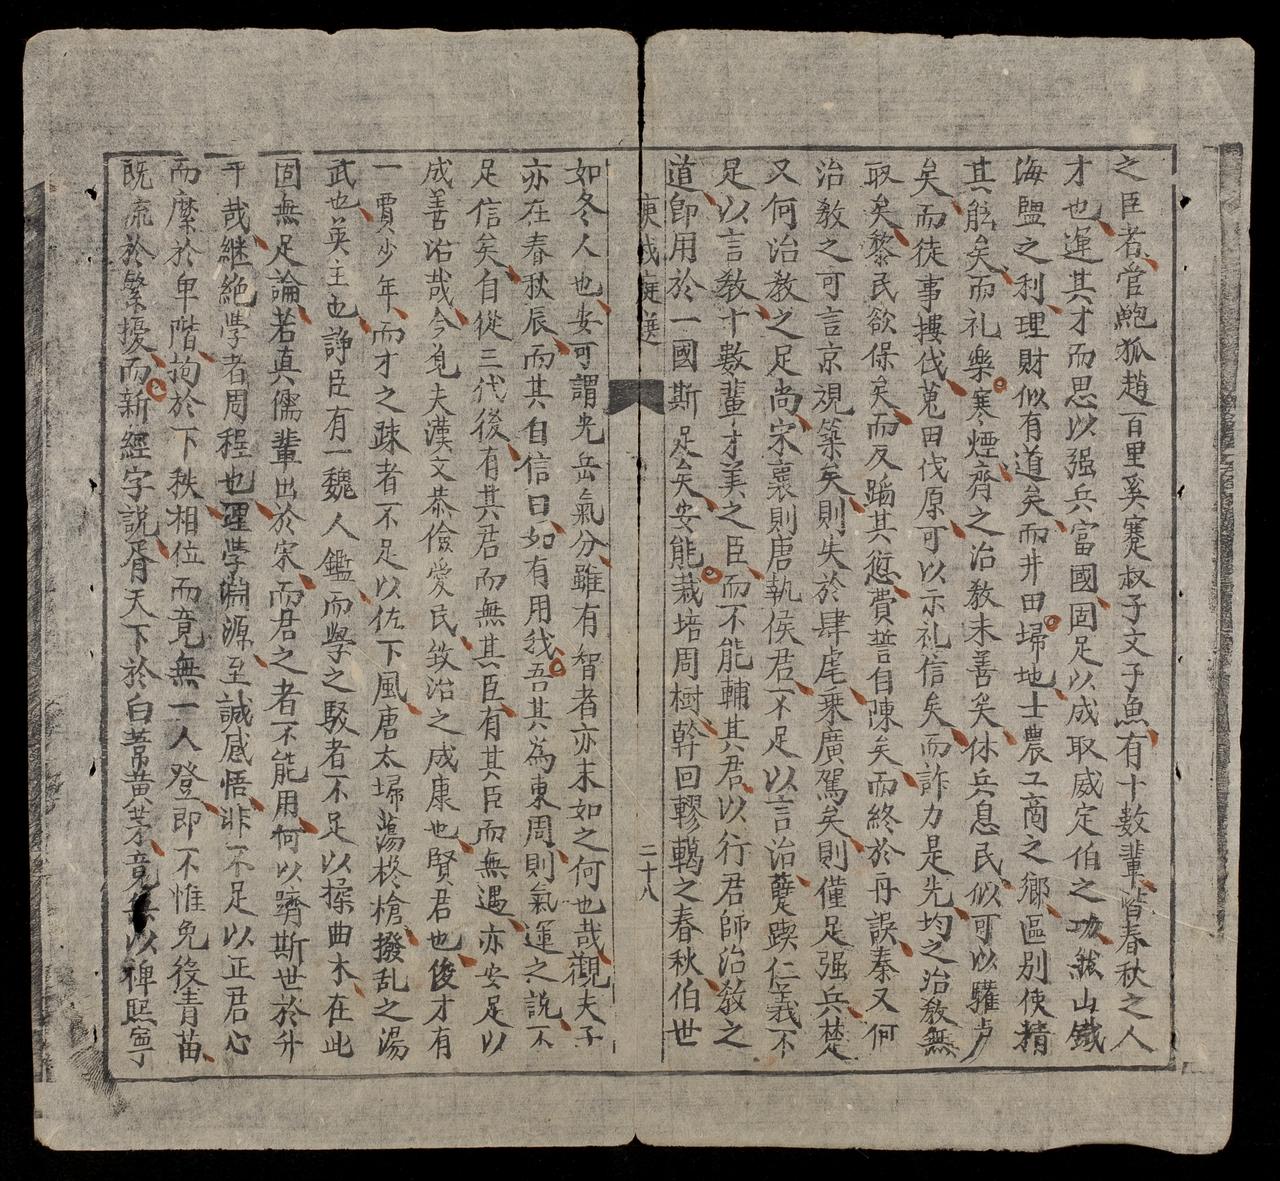 之臣若管鮑狐趙百里奚蹇叔子文子魚有十数輩皆春秋之人
才也運其才而思以强兵富國固足以成取威定伯之功然山鐵
海鹽之利理財似有道矣而井田掃地士農工商之鄉區别使精
其觧矣而礼樂寒煙齊之治教未善矣休兵息民似可以驩卢
矣而徒事摟伐蒐田伐原可以示礼信矣而詐力是先均之治教無
取矣黎民欲保矣而反蹈其愆費誓自陳矣而終於丹誤秦又何
治教之可言京視築矣則失於肆虐乗廣駕矣則僅足强兵楚
又何治教之足尚宋襄則唐執侯君不足以言治薳踐仁義不
足以言教十數輩才美之臣而不能輔其君以行君師治教之
道即用於一國斯足矣安能栽培周樹幹回轇轕之春秋伯世
庚戌庭選
二十八
如冬人也安可謂光岳氣分雖有智者亦末如之何也哉觀夫子
亦在春秋辰而其自信曰如有用我吾其為東周則氣運之説不
足信矣自從三代後有其君而無其臣有其臣而無遇亦安足以
成善治哉今見夫漢文恭儉愛民致治之成康也賢君也後才有
一賈少年而才之踈者不足以佐下風唐太掃蕩柊槍撥乱之湯
武也英主也諍臣有一魏人鑑而學之駁者不足以揉曲木在此
固無足論若真儒輩出於宋而君之者不能用何以躋斯世於升
平哉継絶学者周程也理学淵源至誠感悟非不足以正君心
而縻於卑階拘於下秩相位而竟無一人登即不惟免役青苗
既流於繁擾而新經字説胥天下於白葦黄茅竟無以裨熙寧